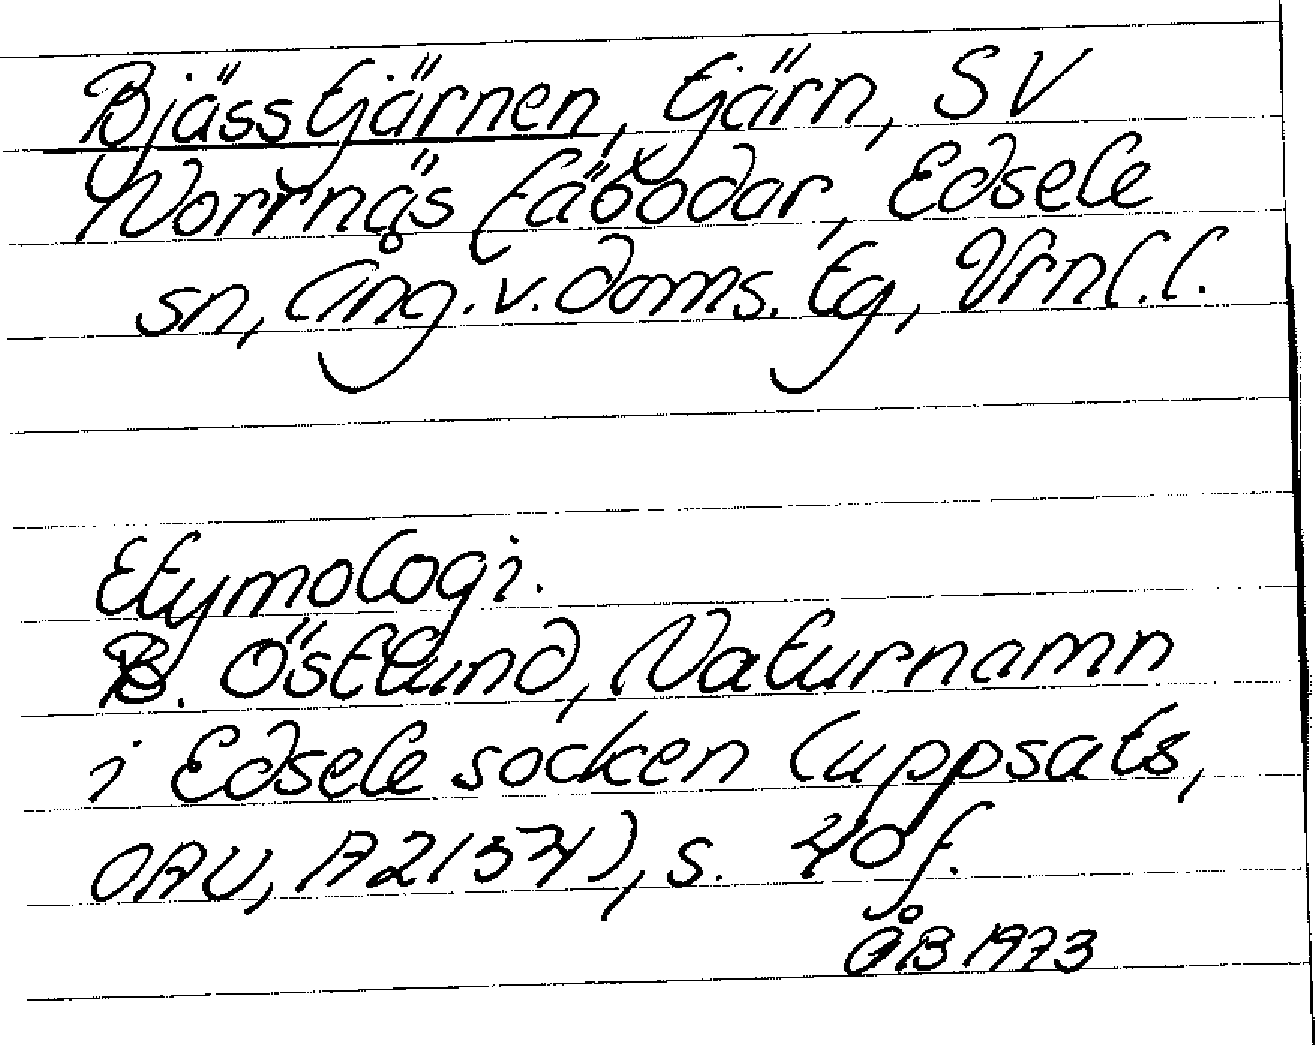 Bjässtjärnen, tjärn, SV
Norrnäs fäbodar, Edsele
sn, Ång. v. doms. tg, Vrnl. l.
Etymologi.
B. Östlund, Naturnamn
i Edsele socken (uppsats,
OAU, A2154), s. 40 f.
ÅB 1973